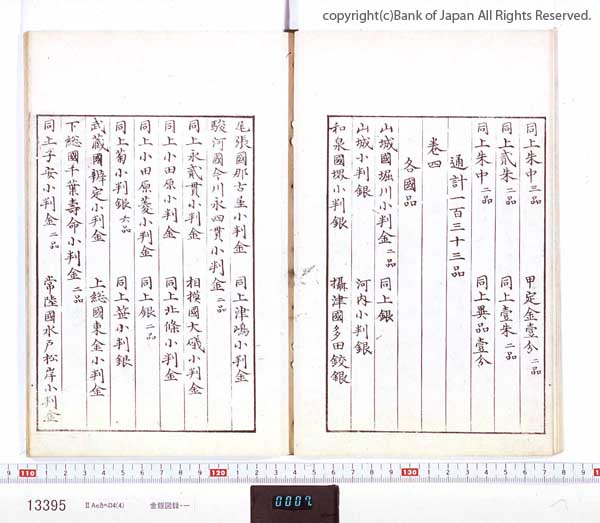 copyright(c)Bank of Japan All Rights Reserved.
同上朱中三品 甲定金壹分二品
同上貳朱二品 同上壹朱二品
同上朱中二品 同上異品壹分
通計一百三十三品
卷四
各國品
山城國堀川小判金二品 同上銀
山城小判銀 河内小判銀
和泉國堺小判銀 攝津國多田鉸銀
尾張國那古屋小判金 同上津嶋小判金
駿河國今川永四貫小判金二品
同上永貳貫小判金 相模國大礒小判金
同上小田原小判金 同上北條小判金
同上小田原菱小判金 同上銀二品
同上菊小判銀六品 同上笹小判銀
武藏國辨定小判金 上総國東金小判金
下総國千葉壽命小判金二品
同上子安小判金二品 常陸國水戸松岸小判金
9 110 1 2 3 4 5 6 7 8 9 120 1 2 3 4 5 6 7 8 9 130 1 2 3 4 5 6 7 8 9
13395 金銀図録・一
0007